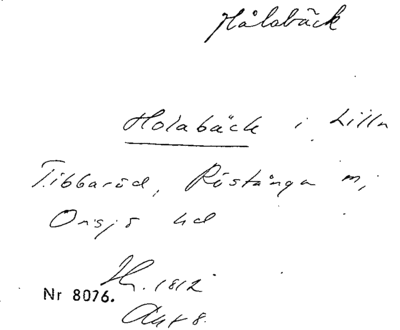 Hålabäck
Holabäck i Lilla
Tibbaröd, Röstånga m,
Onsjö hd
Hr. 1812
Nr 8076.
Akt 8.